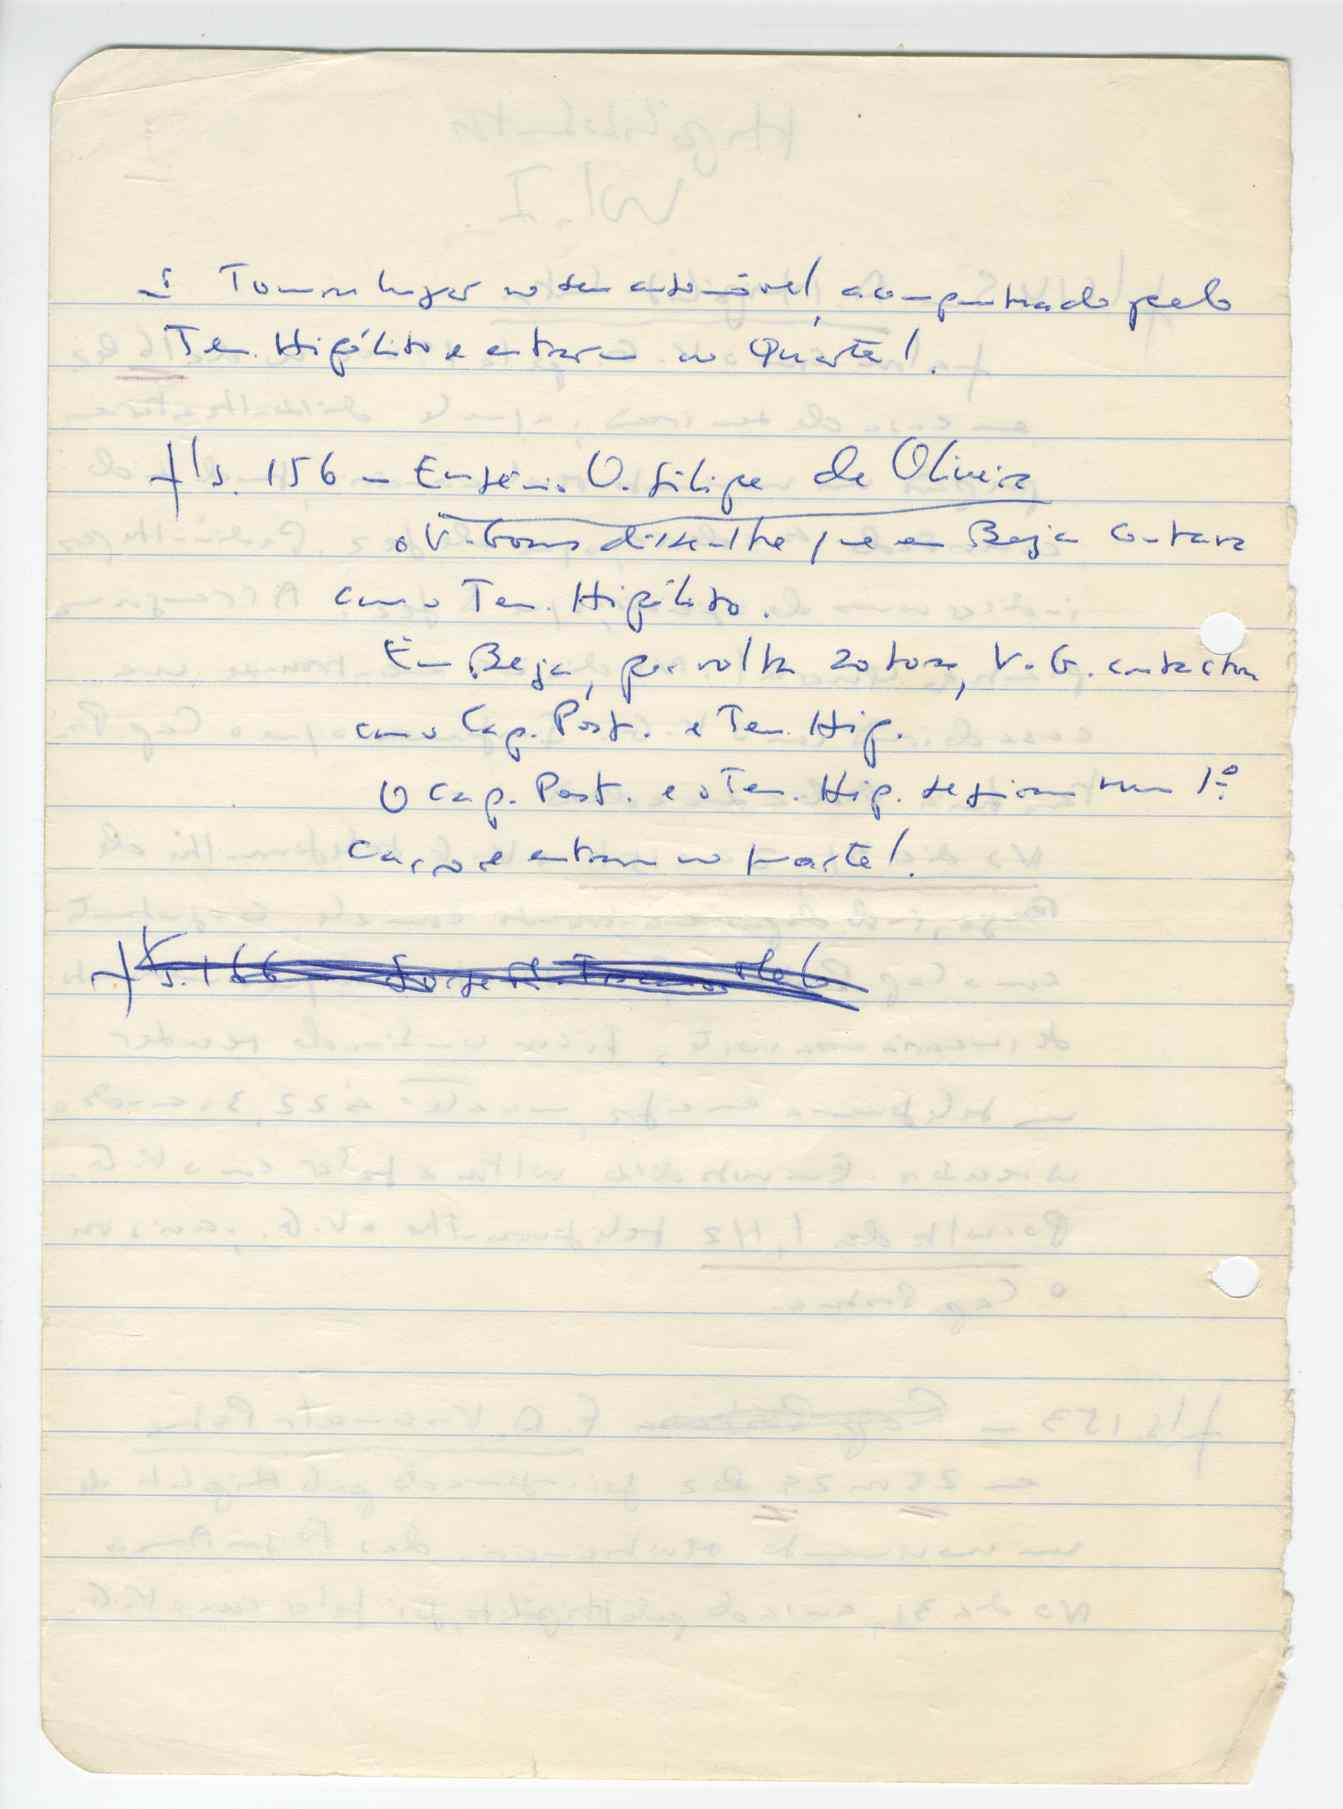 Tomou lugar no seu automóvel, acompanhado pelo
Ten. Hipólito e entrara no Quartel.
fls. 156 - Eugénio O. Filipe de Oliveira
o V. Gomes disse-lhe que em Beja contava
com o Ten. Hipólito.
Em Beja, por volta 20 horas, V. G. contactou
com o Cap. Post. e Ten. Hip.
O Cap. Post. e o Ten. Hip. seguiram num 1º
carro e entram no quartel.
fls. 166